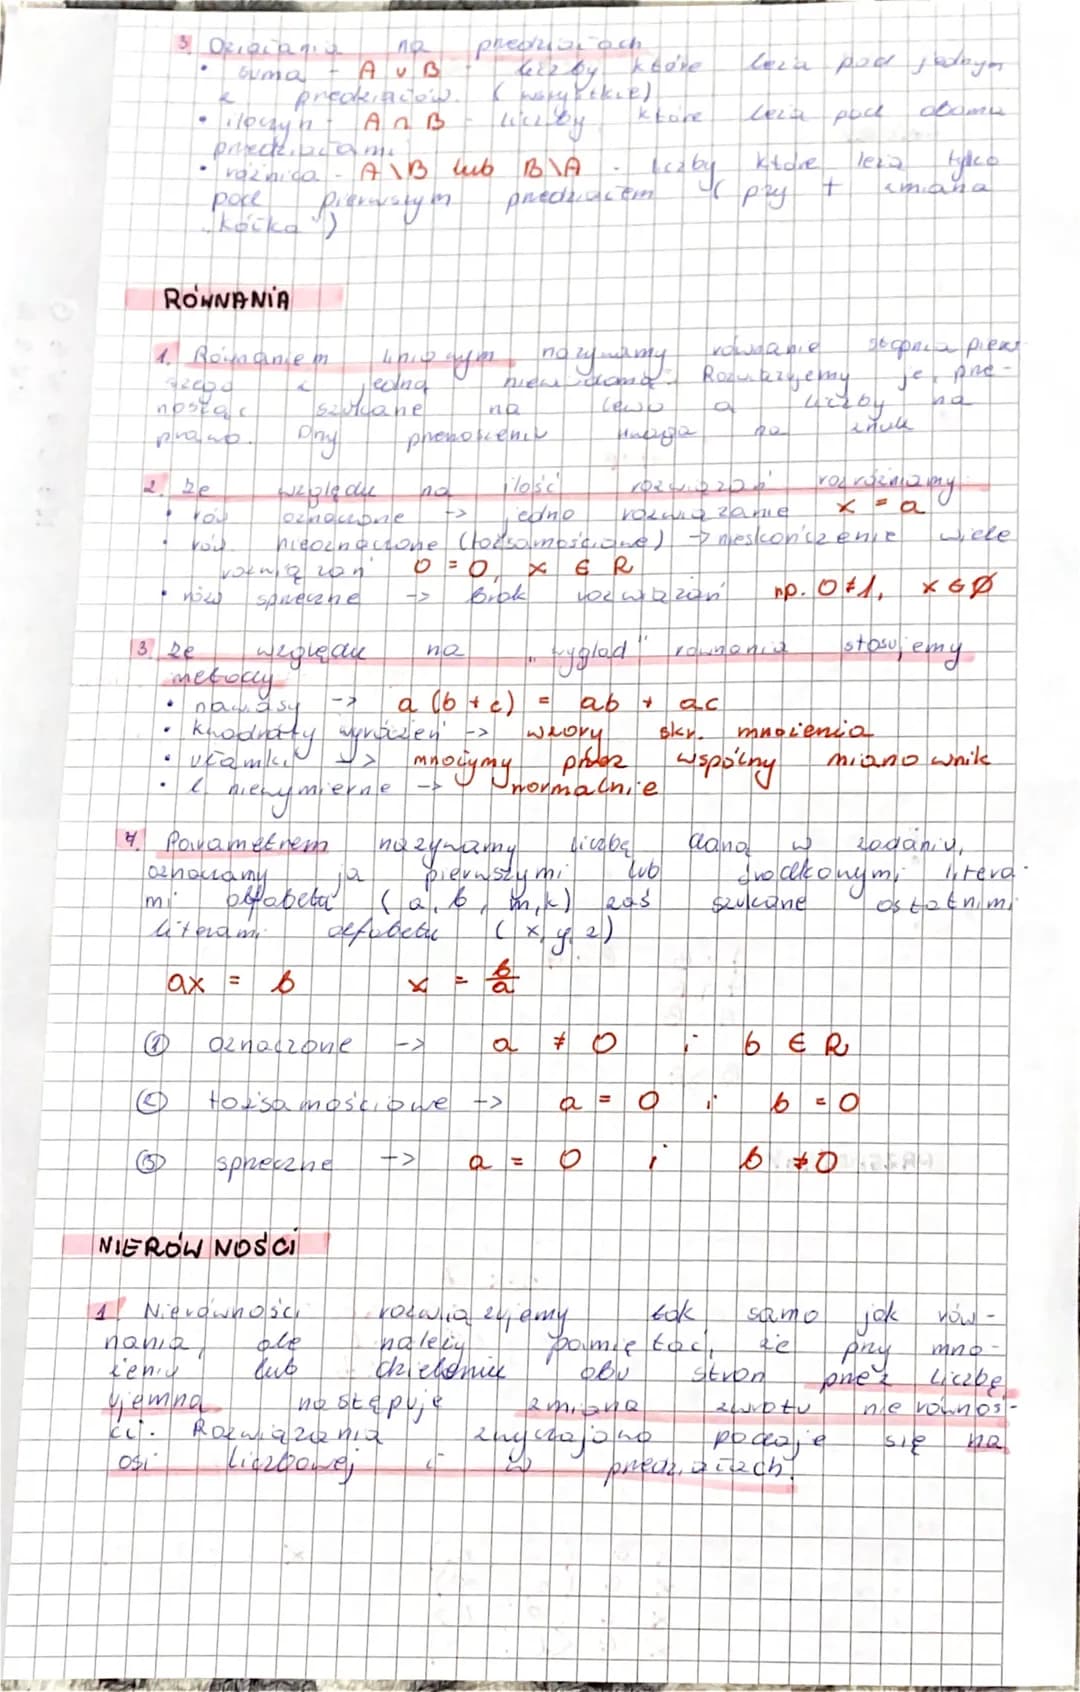 3. Działania na przedziałach
• suma - A ∪ B - liczby, które leżą pod jednym
z przedziałów. (wszystkie)
• iloczyn - A ∩ B - liczby które leżą pod oboma
przedziałami
• różnica - A \ B lub B \ A - liczby które leżą tylko
pod pierwszym przedziałem (przy + zmiana
"kółka")
RÓWNANIA
1. Równaniem liniowym nazywamy równanie stopnia pierw
szego z jedną niewiadomą. Rozwiązujemy je, prze-
nosząc szukane na lewo a liczby na
prawo. Przy przenoszeniu uwaga na znak
2. Ze względu na ilość rozwiązań rozróżniamy
• rów oznaczone -> jedno rozwiązanie x = a
• rów. nieoznaczone (tożsamościowe) -> nieskończenie wiele
rozwiązań 0 = 0, x ∈ R
• rów sprzeczne -> Brak rozwiązań np. 0 ≠ 1, x ∈ Ø
3. Ze względu na "wygląd" równania stosujemy
metody
• nawiasy -> a (b + c) = ab + ac
• kwadraty wyrażeń -> wzory skr. mnożenia
• ułamki -> mnożymy przez wspólny mianownik
• l. niewymierne -> normalnie
4. Parametrem nazywamy liczbę daną w zadaniu,
oznaczamy ją pierwszymi lub środkowymi litera-
mi alfabetu (a, b, m, k) zaś szukane ostatnimi
literami alfabetu (x, y, z)
ax = b x = b/a
① oznaczone -> a ≠ 0 i b ∈ R
② tożsamościowe -> a = 0 i b = 0
③ sprzeczne -> a = 0 i b ≠ 0
NIERÓWNOŚCI
1. Nierówności rozwiązujemy tak samo jak rów-
nania, ale należy pamiętać, że przy mno-
żeniu lub dzieleniu obu stron przez liczbę
ujemną następuje zmiana zwrotu nierównoś-
ci. Rozwiązania zwyczajowo podaje się na
osi liczbowej i w przedziałach.